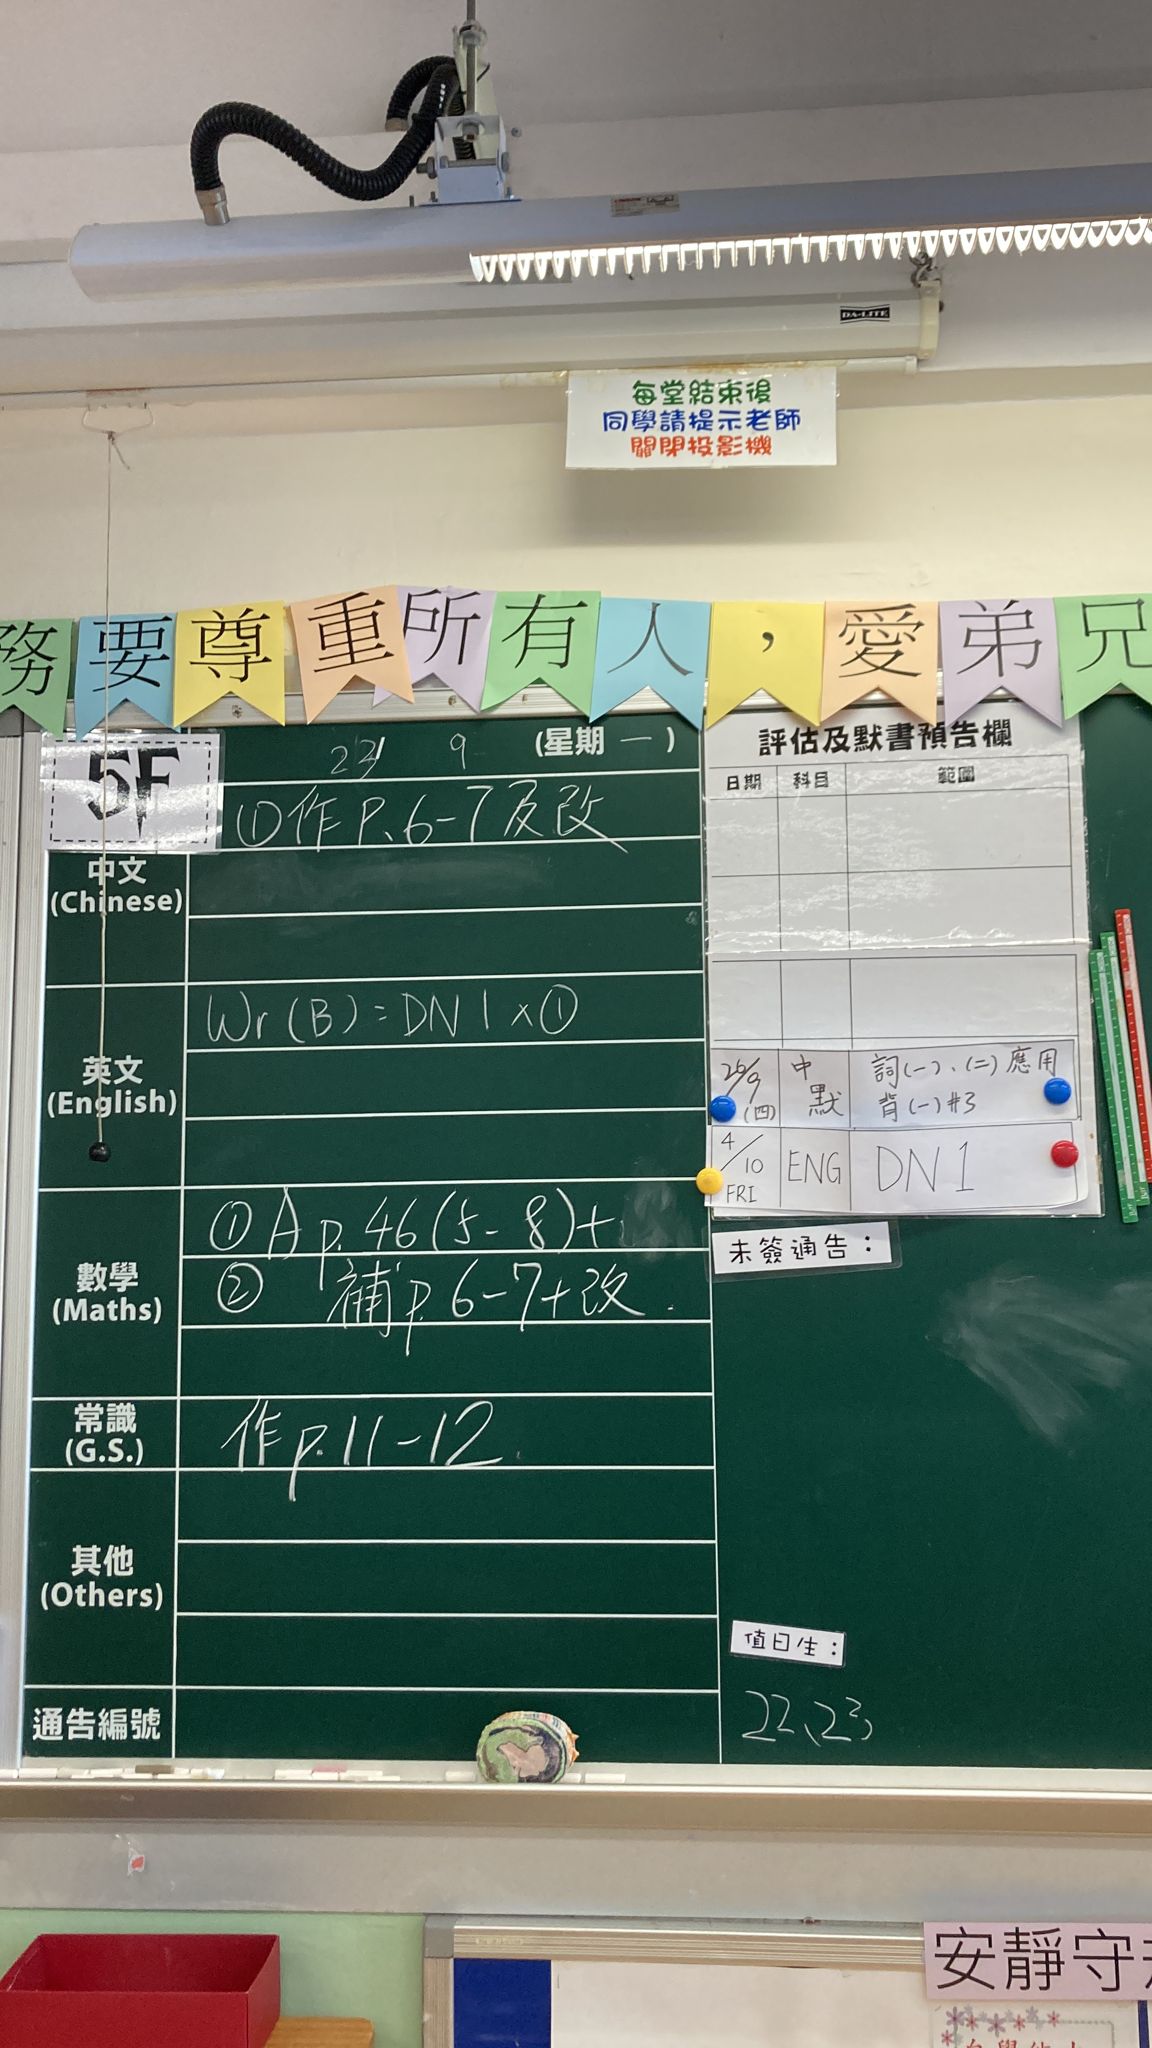 DA-LITE
每堂結束後
同學請提示老師
關閉投影機
務要尊重所有人，愛弟兄
5F
23 9 (星期一)
①作P.6-7及改
中文
(Chinese)
英文
(English)
Wr(B)=DN1x①
數學
(Maths)
①A p.46(5-8)+
② 補p.6-7+改.
常識
(G.S.)
作p.11-12.
其他
(Others)
通告編號
評估及默書預告欄
日期 科目 範圍
26/9 (四) 中默 詞(一)、(二)應用
背(一)#3
4/10 FRI ENG DN1
未簽通告：
值日生：
22、23
安靜守